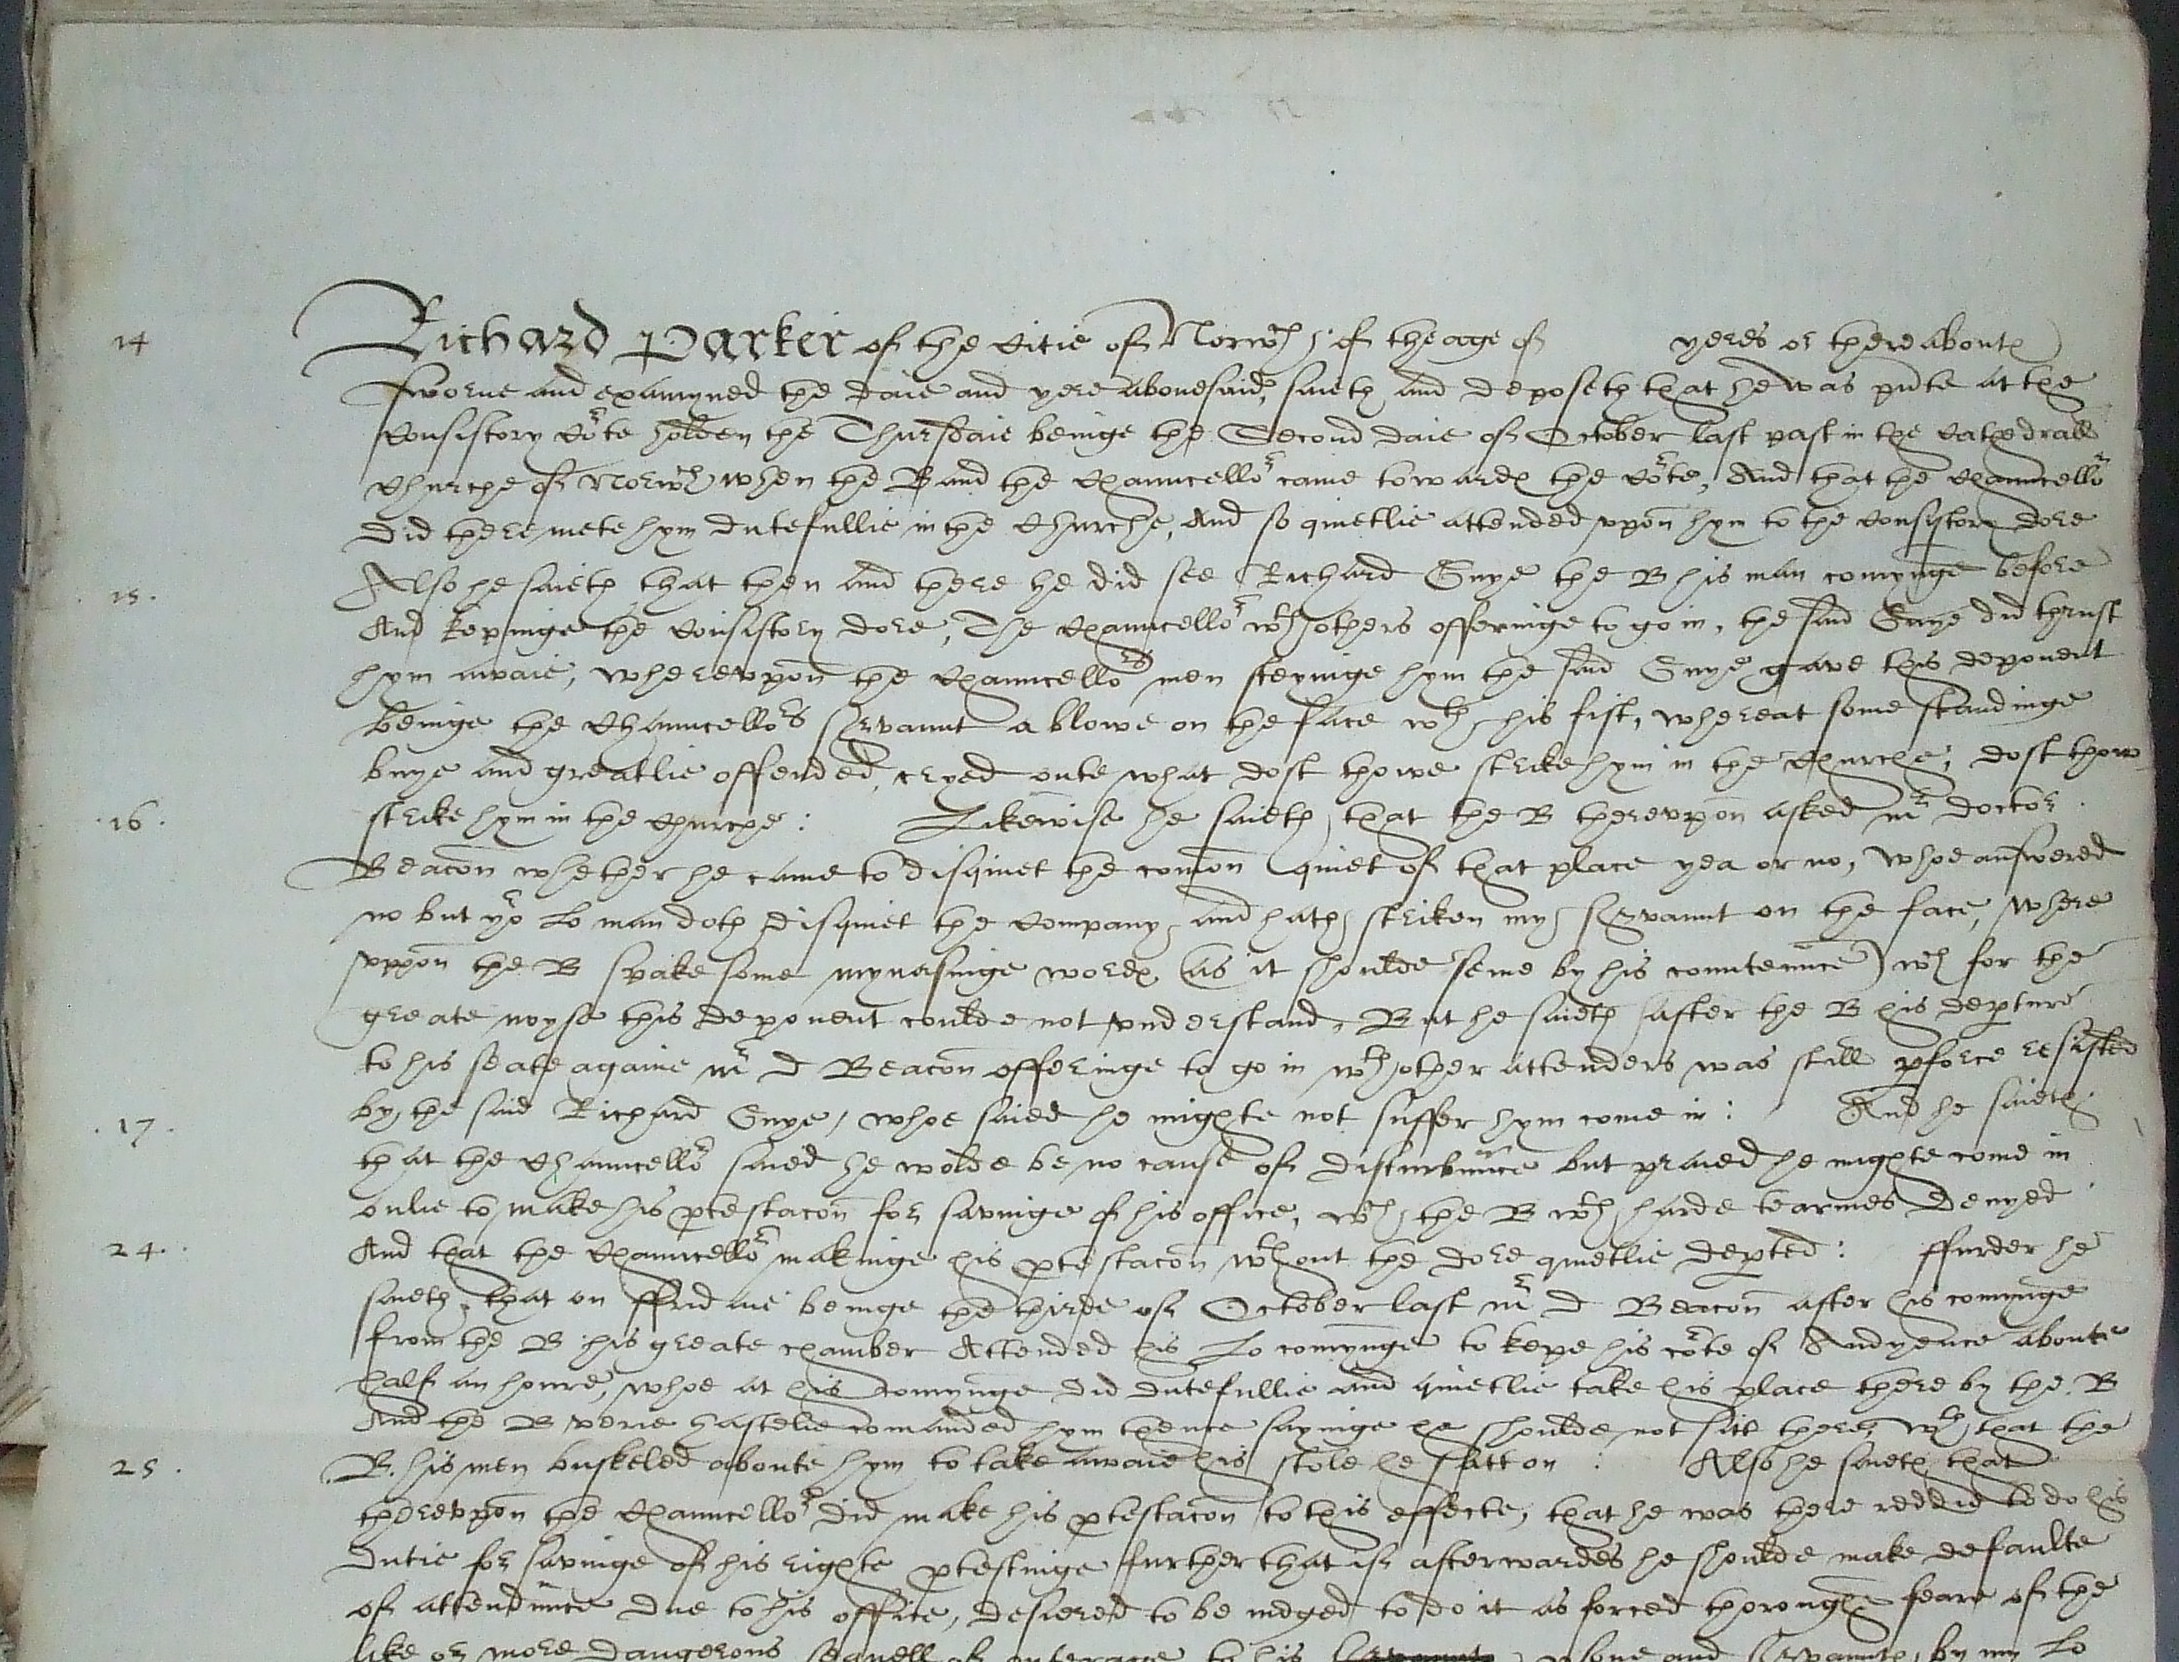 14 Richard Parker of the Citie of Norwch, of the age of yeres or thereaboutes
sworne and examyned the daie and yere abovesaid, saieth and deposeth that he was pñte at the
Consistory Co^rte holden the Thursdaie beinge the Second daie of October last past in the Cathedrall
Churche of Norwch when the B and the Chauncello^r came towardes the Co^rte, And that the Chauncello^r
did there mete hym dutefullie in the Churche, And so quietlie attended vppon hym to the Consistory dore
15. Also he saieth that then and there he did see Richard Snye the B his man comynge before
And kepinge the Consistory dore, The Chauncello^r wth others offeringe to go in, the said Snye did thrust
hym awaie, wherevppon the Chauncello^rs men steyinge hym the said Snye gave this deponent
beinge the Chauncello^rs servaunt a blowe on the face wth his fist, whereat some standinge
bnye and greatlie offended, cryed oute what dost thowe strike hym in the Churche, dost thow
16. strike hym in the Churche: Likewise he saieth that the B therevppon asked m^r doctor
Beacon whether he came to disquiet the comon quiet of that place yea or no, whoe answered
no but yo^r Lo man doth disquiet the Company and hath striken my servaunt on the face, where
vppon the B spake some mynasinge wordes (as it shoulde seme by his countennce) wch for the
greate noyse this deponent coulde not vnderstand, But he saieth after the B his depture
to his seate againe m^r D Beacon offeringe to go in wth other attenders was still pforce resisted
17. by the said Richard Snye, whoe saied he mighte not suffer hym come in: And he saieth
that the Chauncello^r saied he wolde be no cause of disturbnnce but praied he mighte come in
onlie to make his ptestacon for savinge of his office, wch the B wth harde tearmes denyed
24. And that the Chauncello^r makinge his ptestacon wthout the dore quietlie depted: ffurder he
saieth, that on ffridaie beinge the thirde of October last m^r D Beacon after his comynge
from the B his greate chamber Attended his Lo comynge to kepe his co^rte of Audyence aboute
half an houre, whoe at his comynge did dutefullie and quietlie take his place there by the B
And the B verie hastelie comanded hym thence sayinge he shoulde not sitt there, wth that the
25. B. his men buskeled aboute hym to take awaie his stole he satt on: Also he saieth that
therevppon the Chauncello^r did make his ptestacon to this effecte, that he was there reddie to do his
dutie for savinge of his righte ptestinge further that if afterwardes he shoulde make defaulte
of attendnnce due to his office, desiered to be iudged to do it as forced thoroughe feare of the
like or more dangerous sequell of outerage to his psone and servauntes, by my Lo